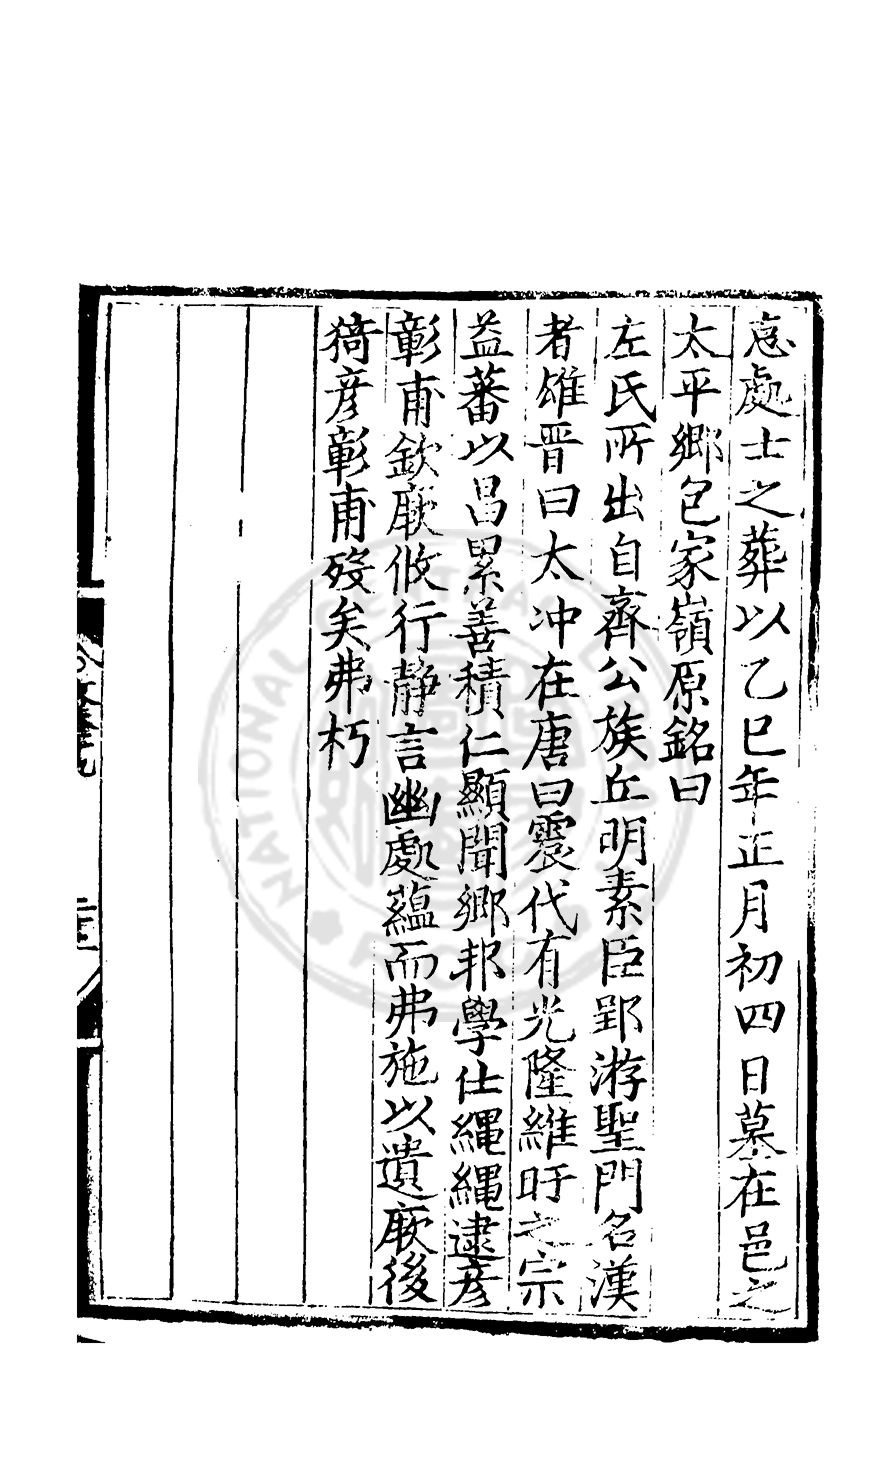 處士之葬以乙巳年正月初四日墓在邑之
太平鄉包家嶺原銘曰
左氏所出自齊公族丘明素臣郢游聖門名漢
者雄晋曰太冲在唐曰震代有光隆維旴之宗
益蕃以昌累善積仁顯聞鄉邦學仕繩繩逮彦
彰甫欽厥攸行静言幽處藴而弗施以遺厥後
猗彦彰甫歿矣弗朽
NATIONAL CENTRAL